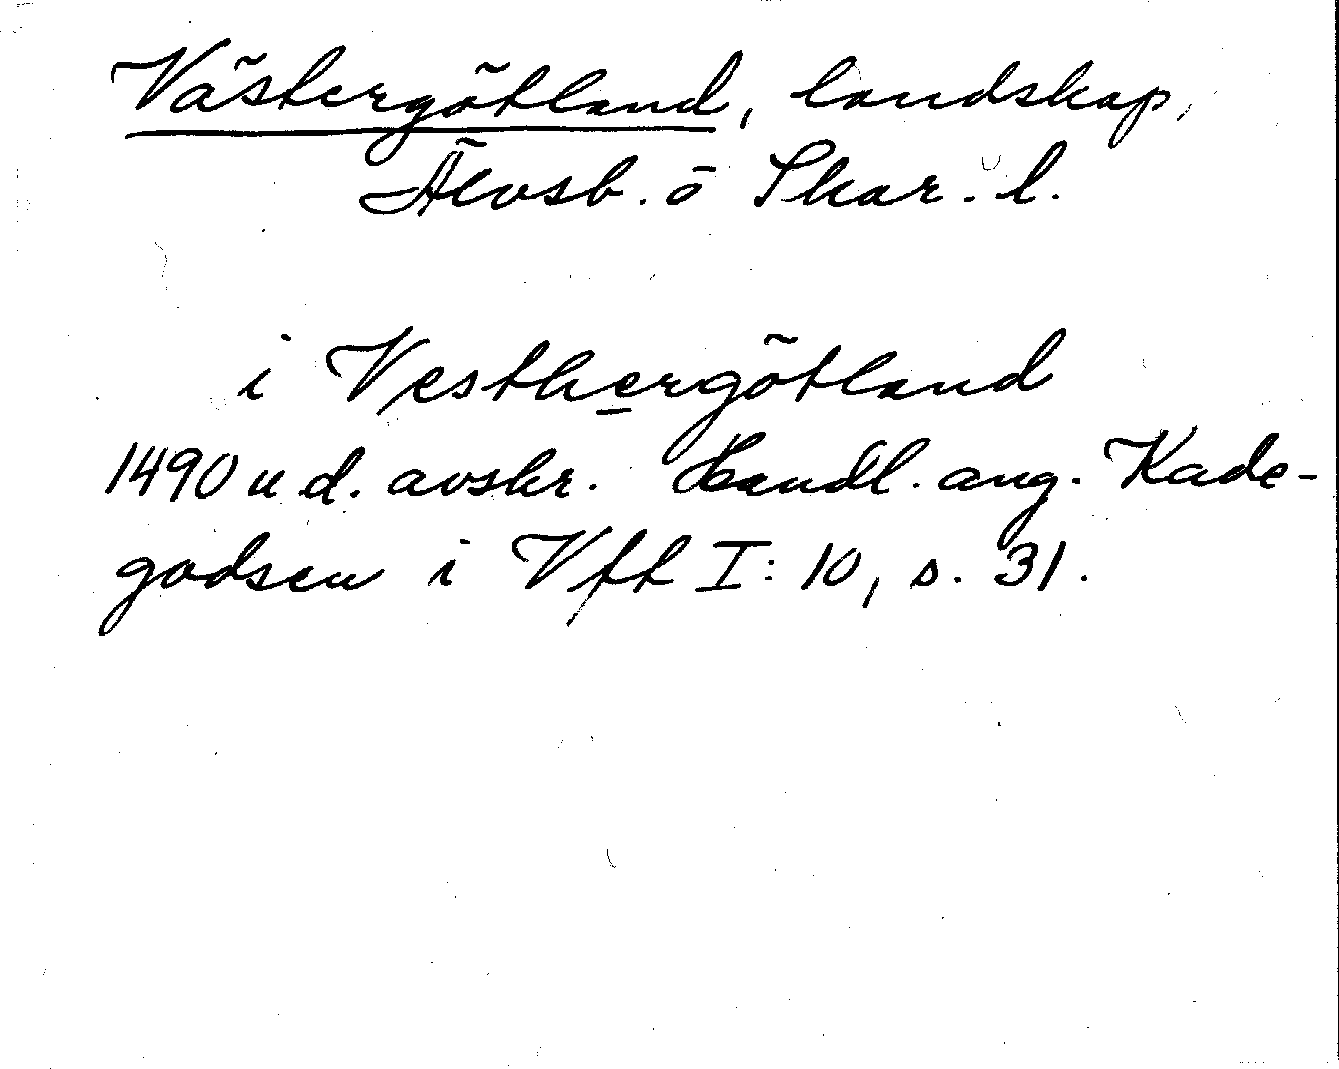 Västergötland, landskap,
Älvsb. o Skar. l.
i Vesthergötland
1490 u.d. avskr. Handl. ang. Kade-
godsen i Vft I: 10, s. 31.